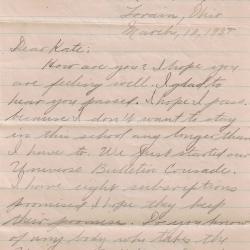 Lorain, Ohio
March, 12, 1928
Dear Kate:
How are you? I hope you
are feeling well. I glad to
hear you passed. I hope I pass
because I don't want to stay
in this school any longer than
I have to. We just started our
Universe Bulletin Crusade.
I have eight subscriptions
promised I hope they keep
their promise. Do you know
of any body who takes the